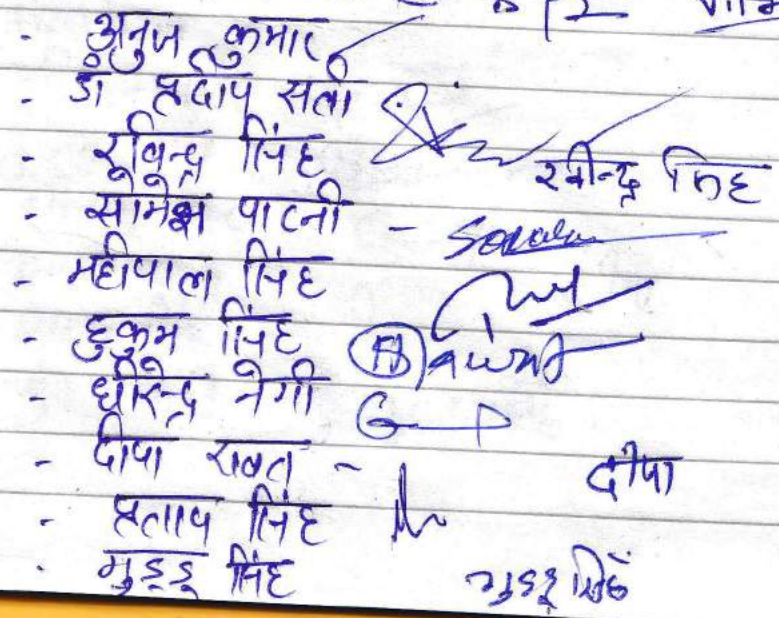 - अनुज कुमार
- डॉ प्रदीप सती
- रविन्द्र सिंह रवीन्द्र सिंह
- सोमेश पाटनी -
- महीपाल सिंह
- हुकुम सिंह
- धीरेन्द्र नेगी
- दीपा रावत - दीपा
- प्रताप सिंह
- गुड्डू सिंह गुड्डू सिंह